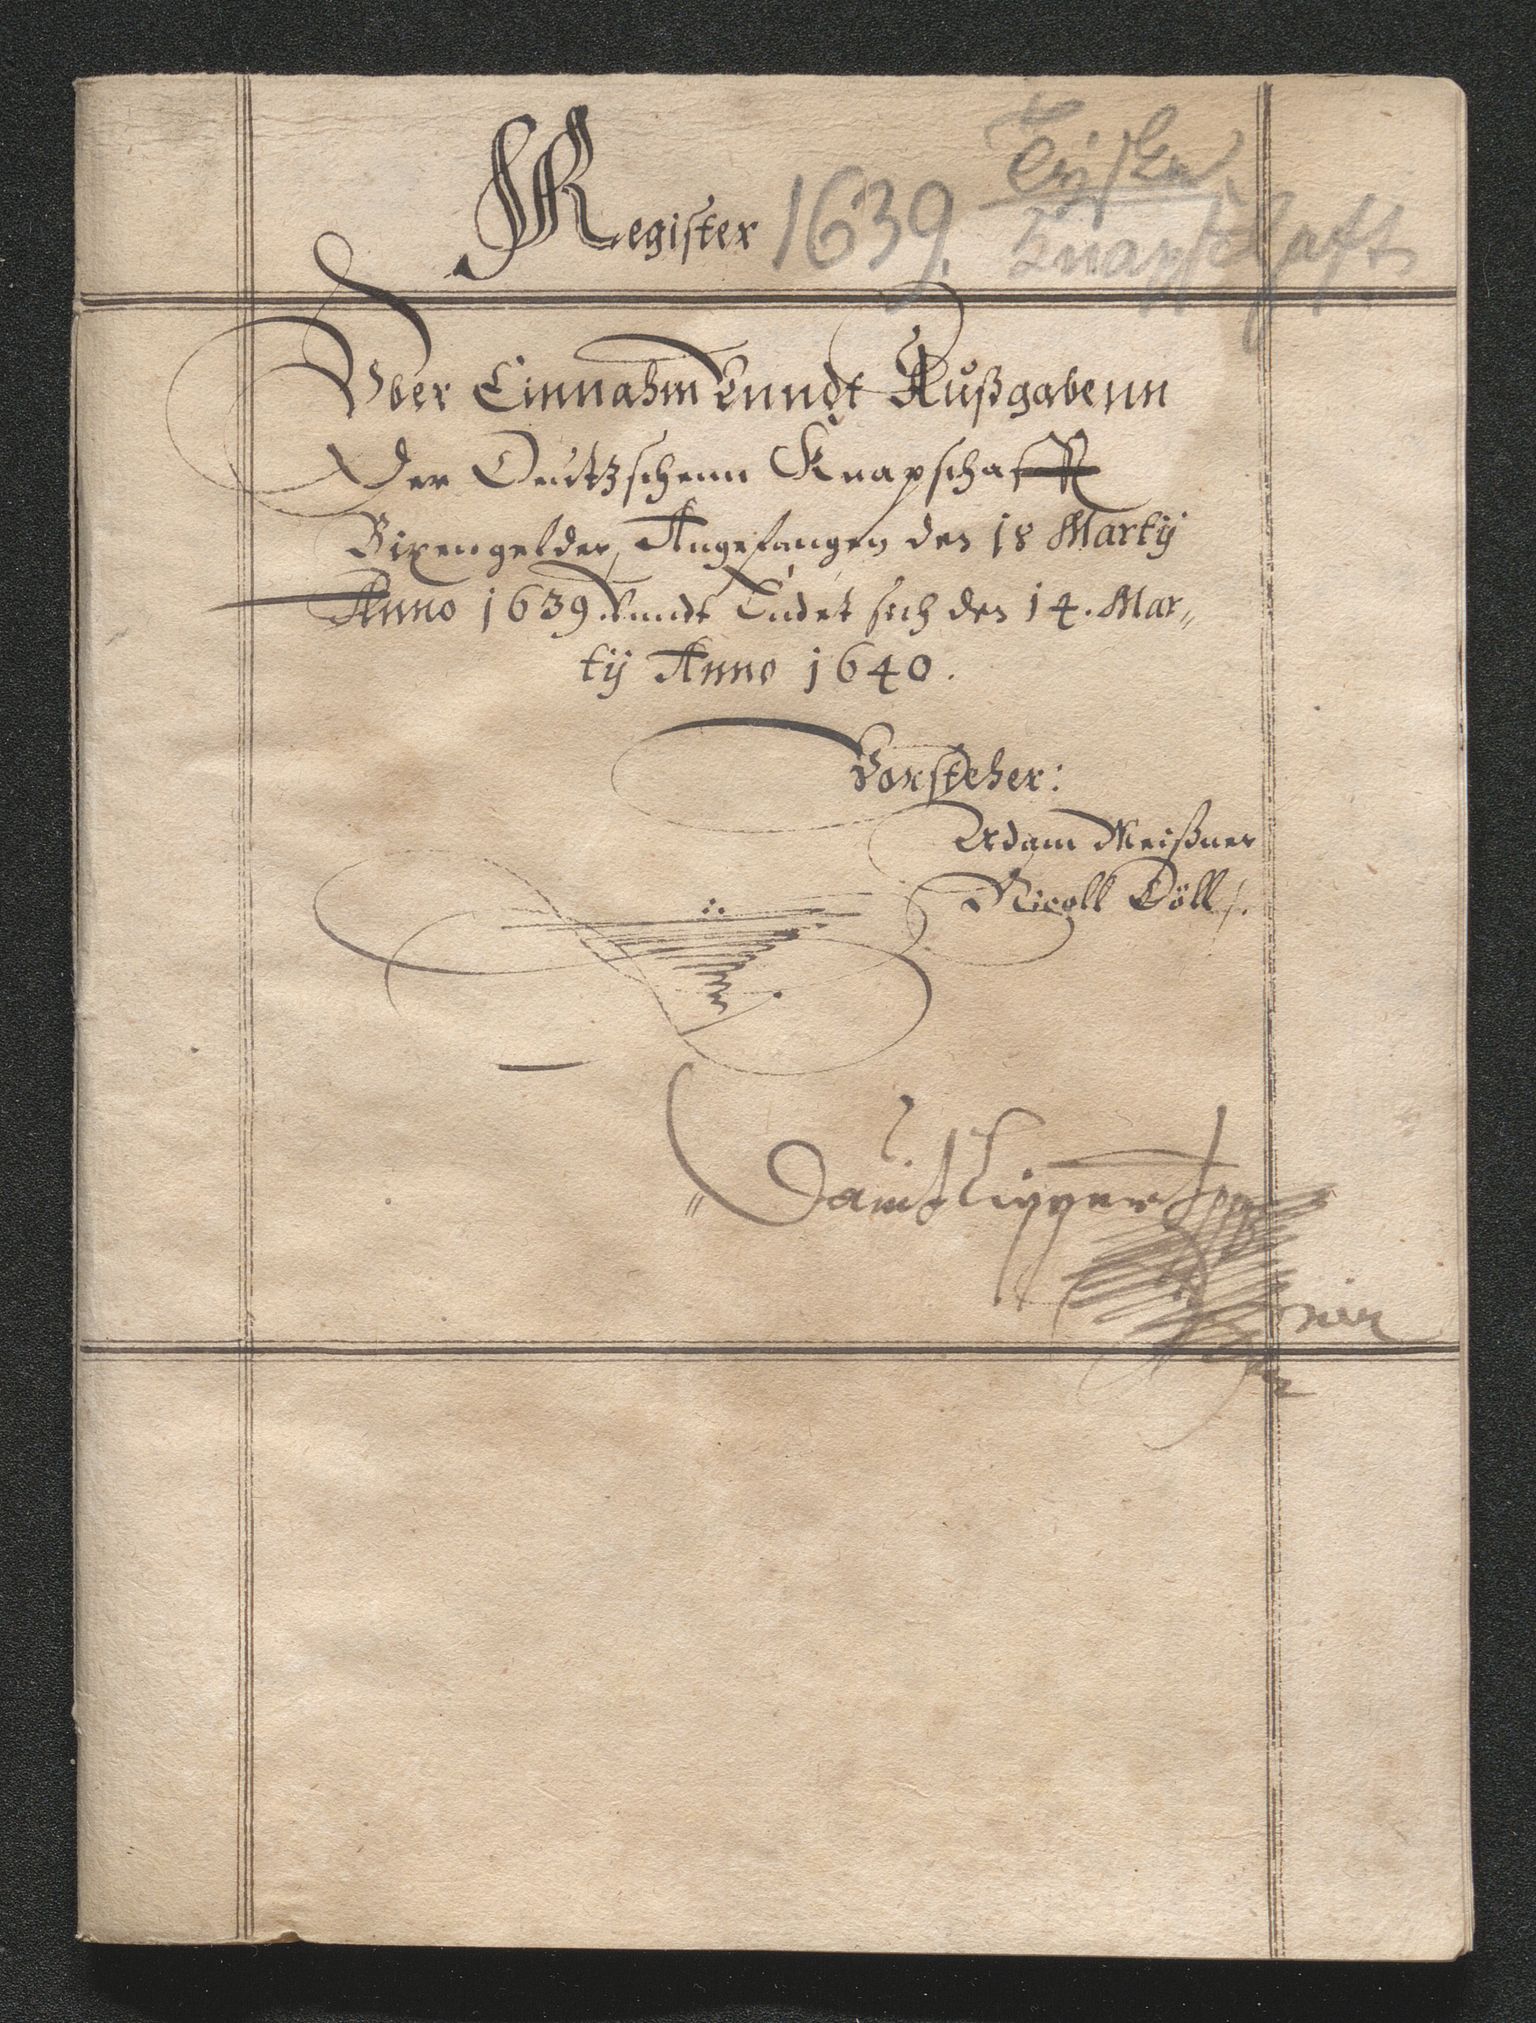 Register 1639.
Tÿsken
Knapschaft
Vber Einnahm Vnndt Außgabenn
Der Deutzschenn Knapschafft
Bixengelder, Angefangen den 18 Martÿ
Anno 1639. Vnndt Endet sich den 14. Mar„
tÿ Anno 1640.
Vorsteher:
Adam Meißner
Nicoll Döll
Davidt Lippert